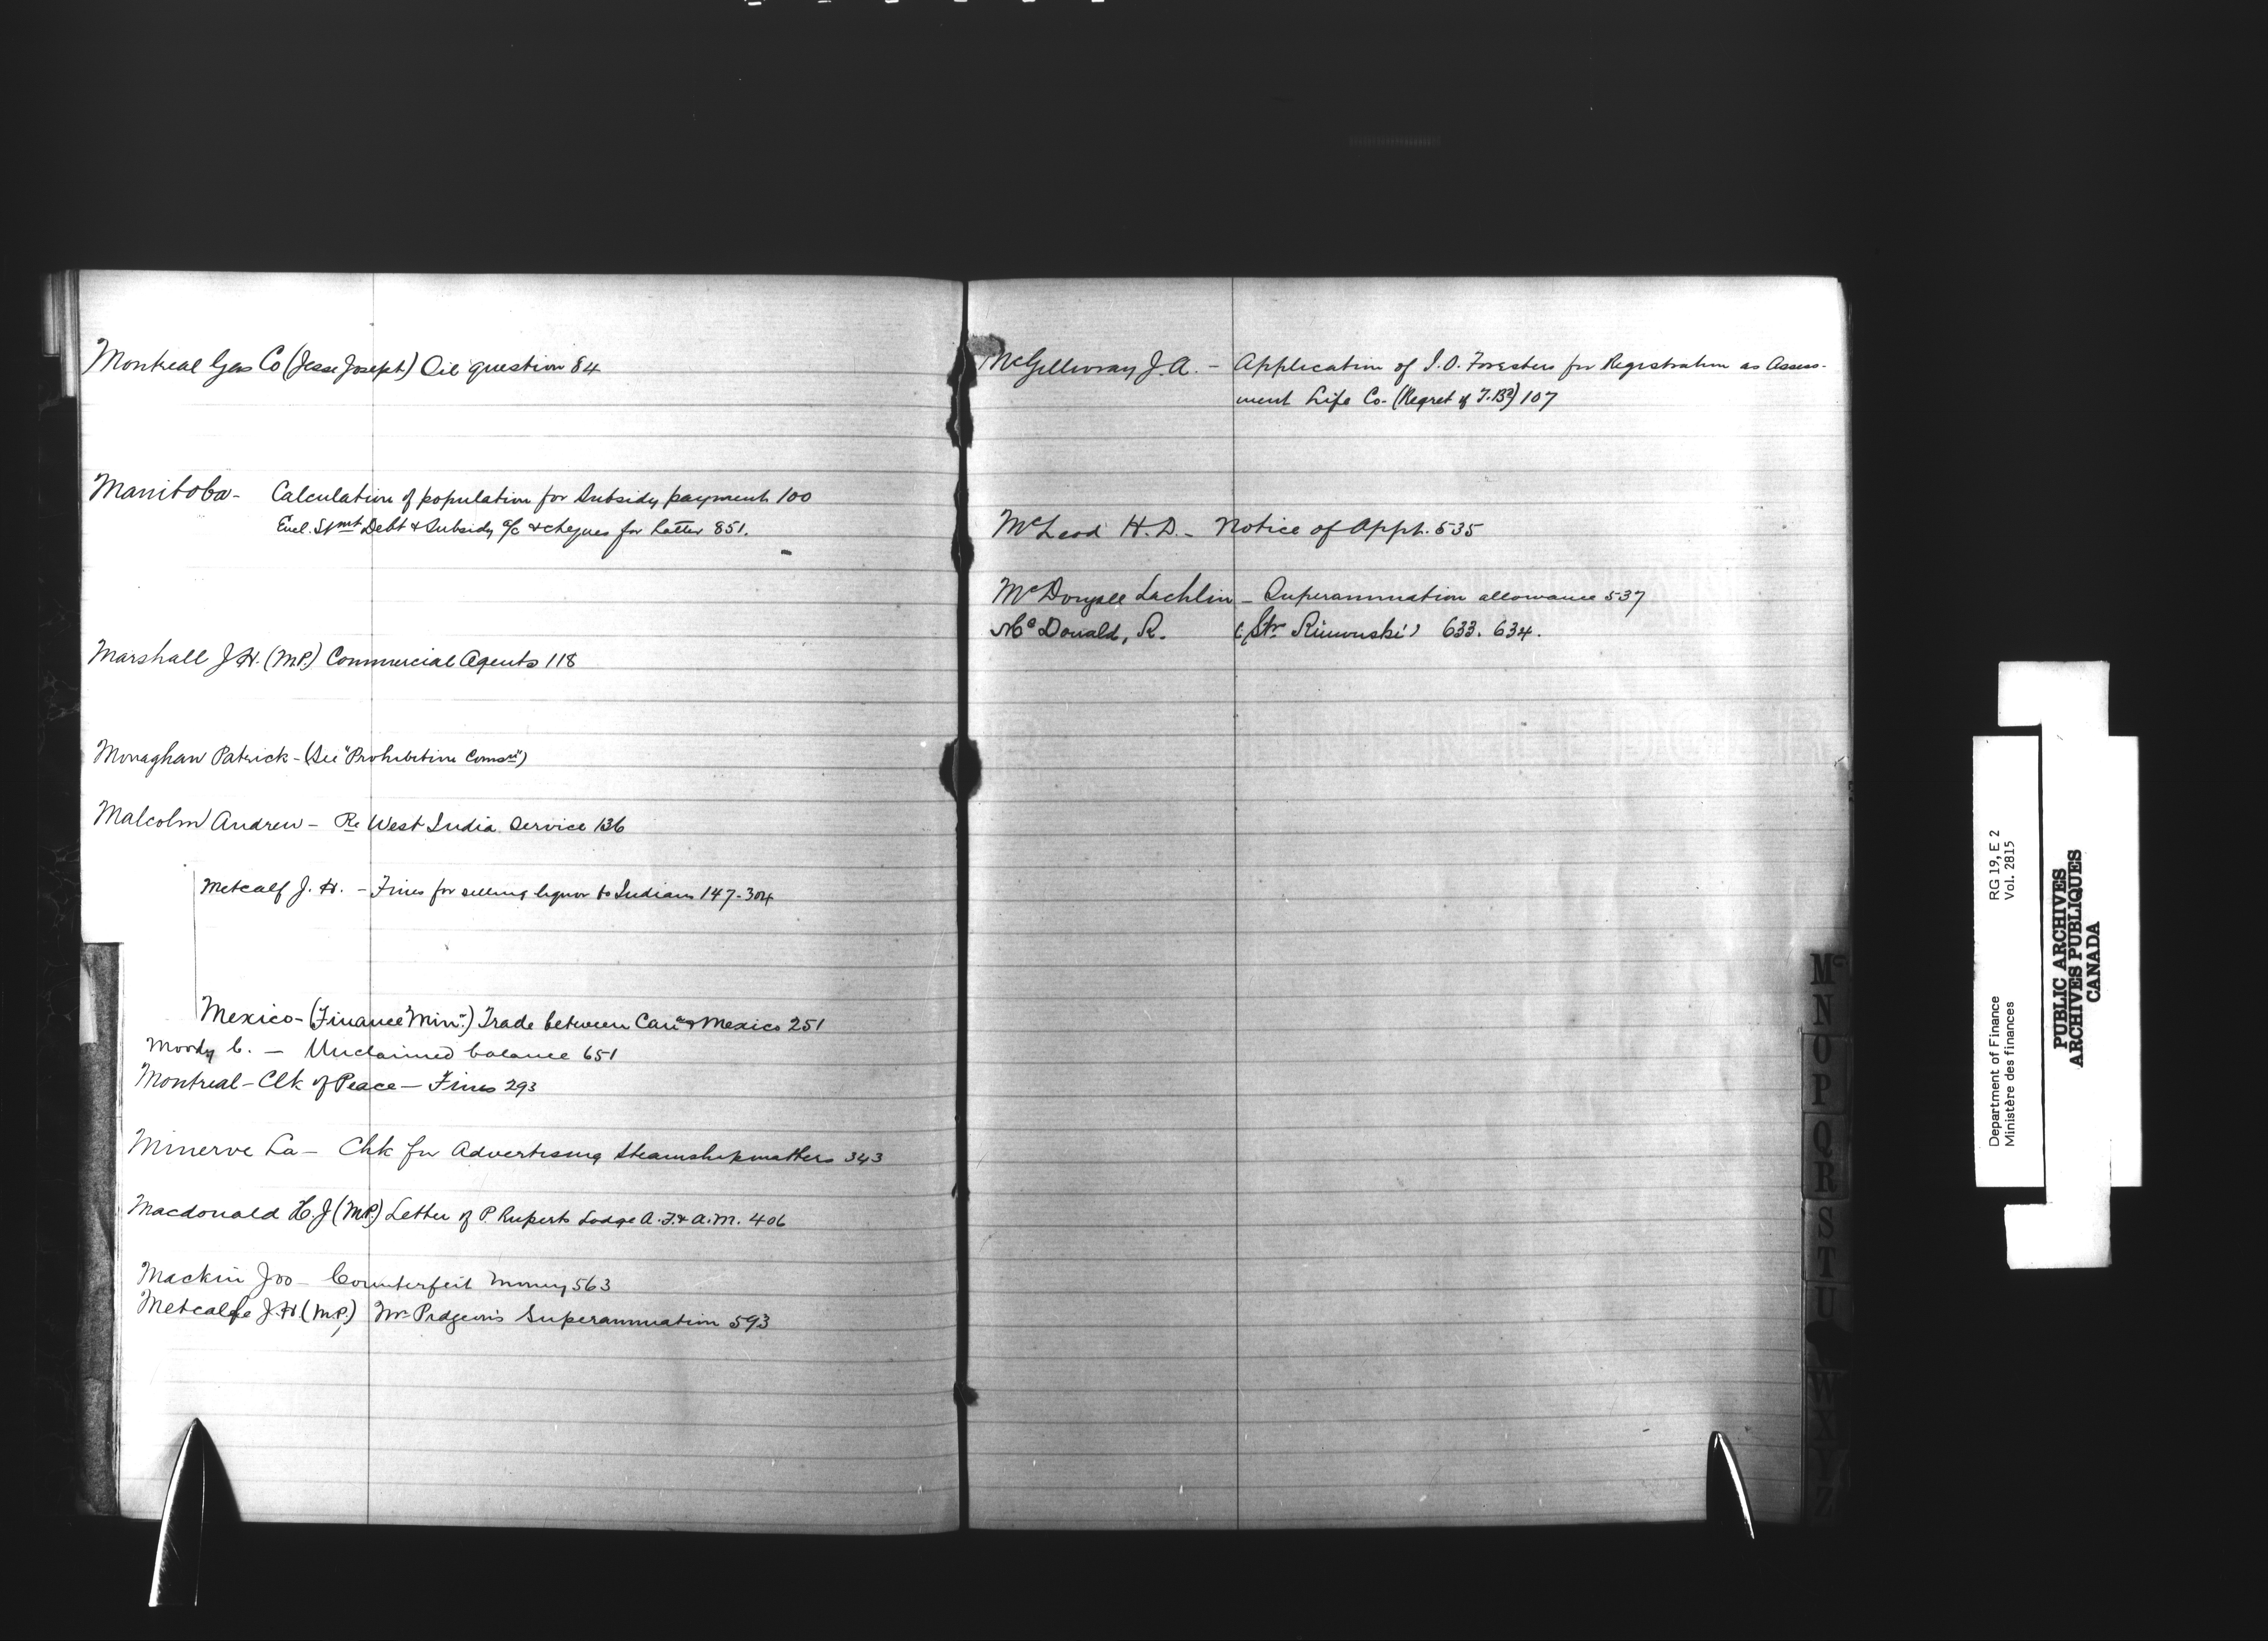 Montreal Gas Co (Jesse Joseph) Oil question 84
Manitoba - Calculation of population for Subsidy payment 100
Encl. Stmt Debt & Subsidy a/c & cheques for latter 851.
Marshall J.H. (M.P.) Commercial Agents 118
Monaghan Patrick - (See "Prohibition Comsn")
Malcolm Andrew - Re West India Service 136
Metcalf J. H. - Fines for selling liquor to Indians 147-304
Mexico - (Finance Minr.) Trade between Cana & Mexico 251
Moody C. - Unclaimed balance 651
Montreal - Clk of Peace - Fines 293
Minerve La - Chk for Advertising Steamship matters 343
Macdonald H.J (M.P.) Letter of P. Ruperts Lodge A.F. & A.M. 406
Mackin Jno - Counterfeit money 563
Metcalfe J.H. (M.P.) Mr Superannuation 593
McGillivray J.A. - Application of I.O. Foresters for Registration as Assess-
ment Life Co. (Regret of T.Bd) 107
McLeod H.D. - Notice of Appt. 535
McDougall Lachlin - Superannuation allowance 537
McDonald, R. (Str. Rimouski) 633. 634.
Mc
N
O
P
Q
R
S
T
U
W
X
Y
Z
RG 19, E 2
Vol. 2815
Department of Finance
Ministère des finances
PUBLIC ARCHIVES
ARCHIVES PUBLIQUES
CANADA